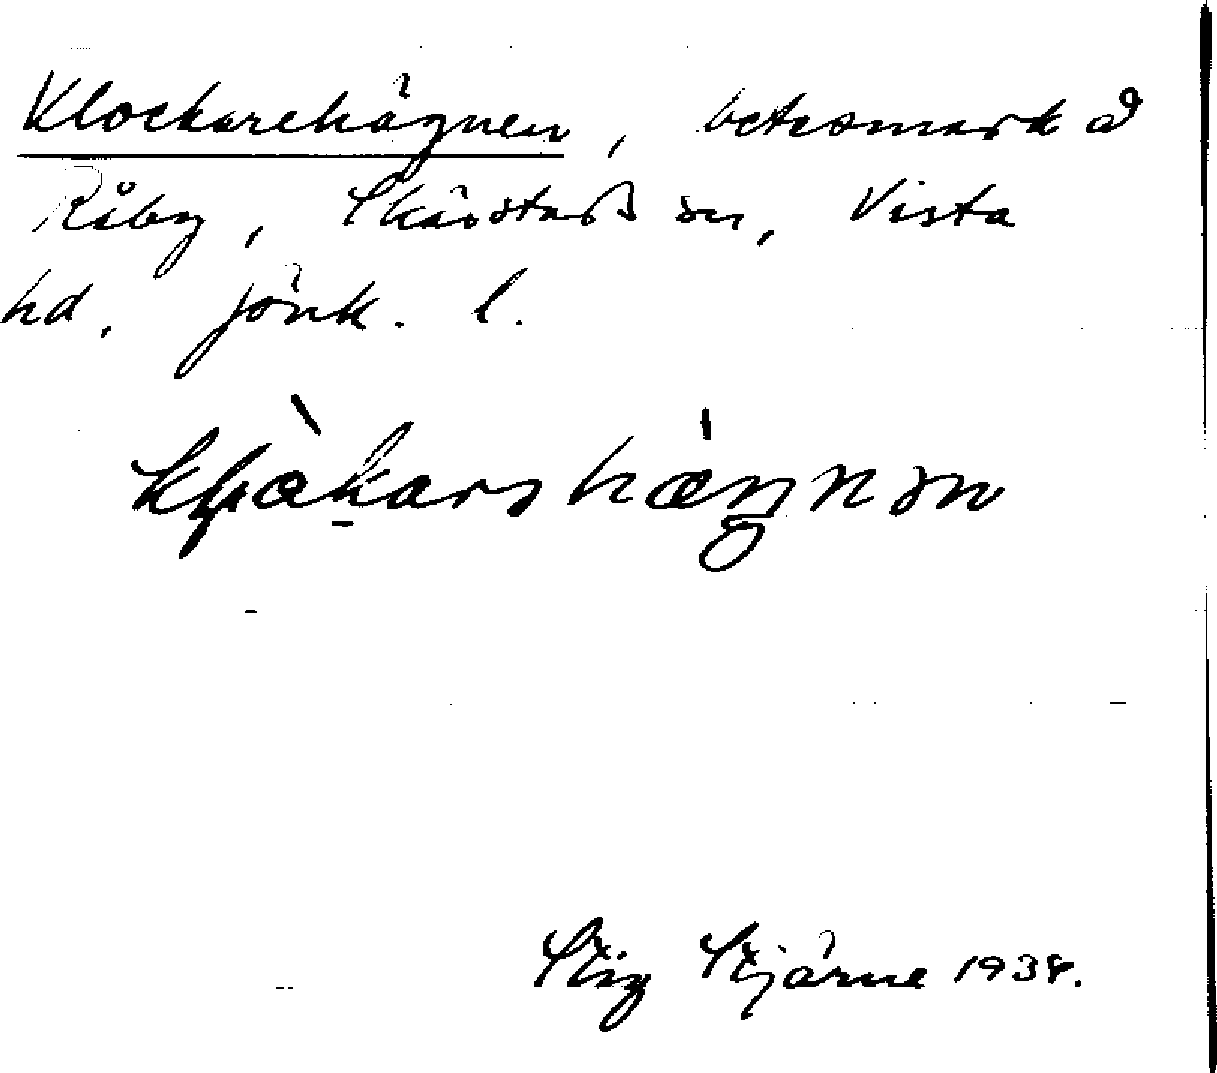 Klockarehägnen, betesmark å
Råby, Skärstads sn, Vista
hd. Jönk. l.
Stig Stjärne 1938.